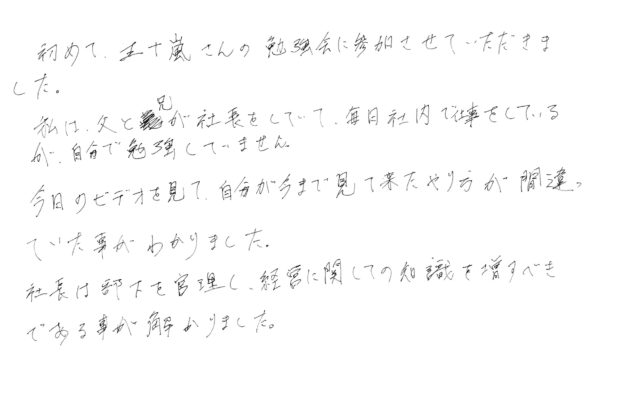 初めて、五十嵐さんの勉強会に参加させていただきま
した。
私は、父と兄が社長をしていて、毎日社内で仕事をしている
が、自分で勉強していません。
今日のビデオを見て、自分が今まで見て来たやり方が間違っ
ていた事がわかりました。
社長は部下を管理し、経営に関しての知識を増すべき
である事が解かりました。